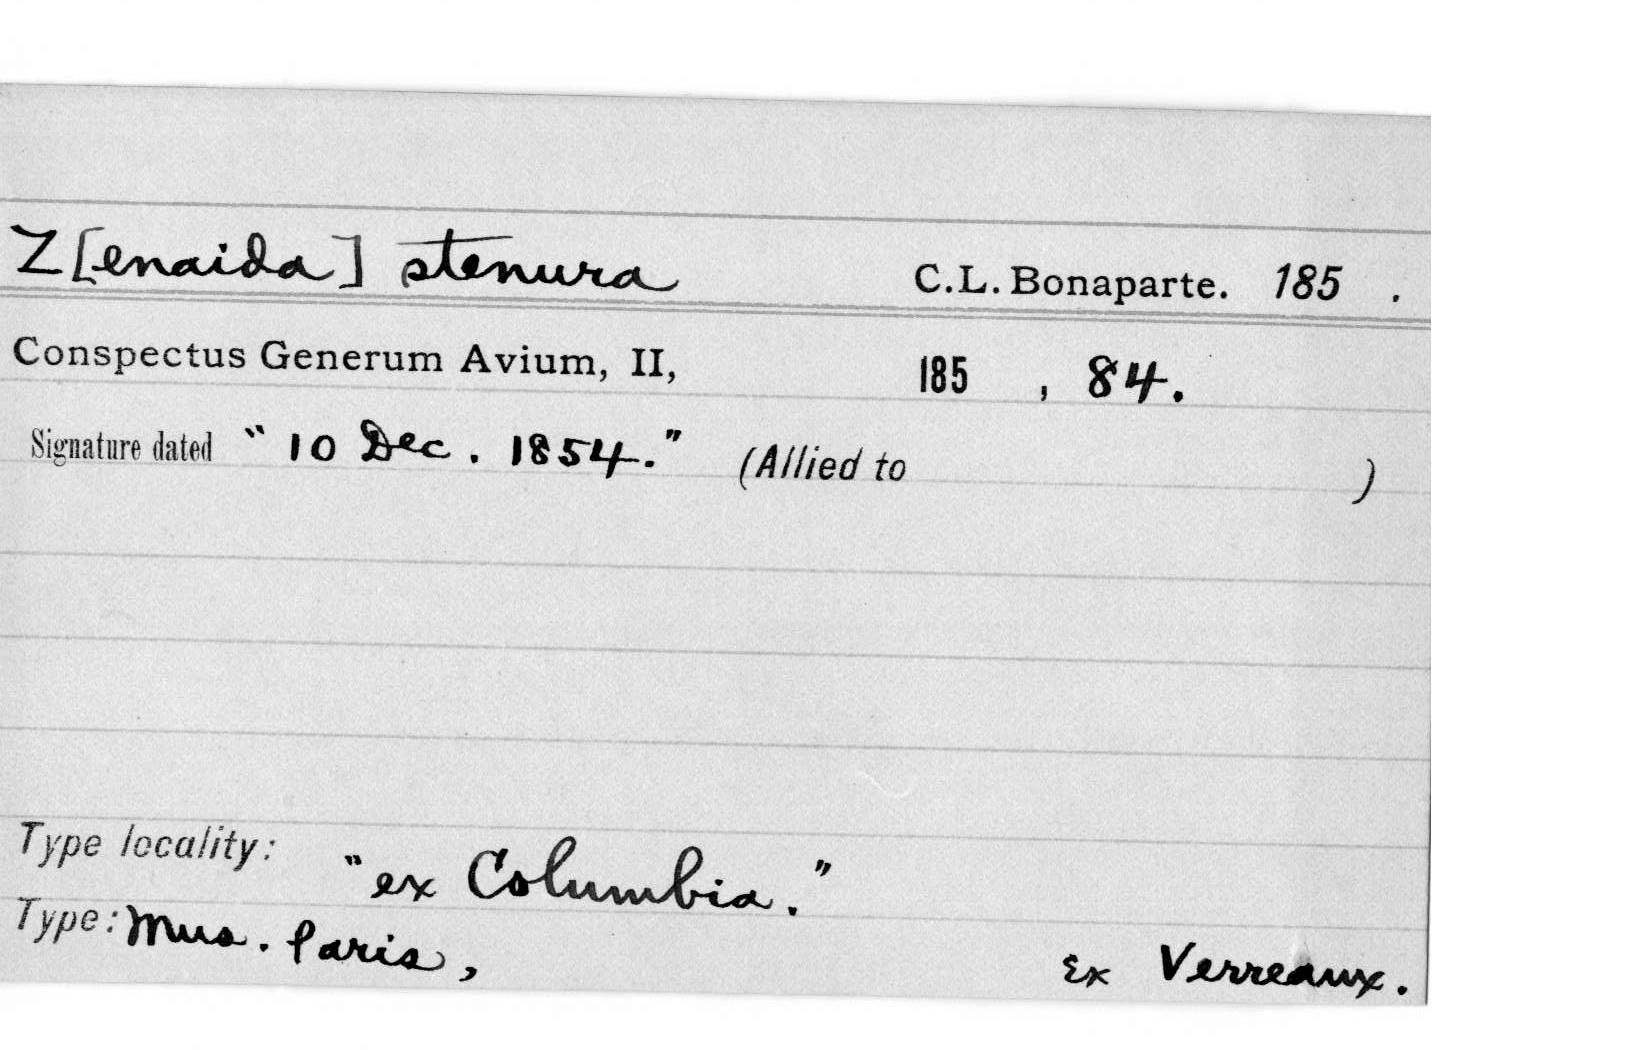 Z[enaida] stenura C.L. Bonaparte. 185 .
Conspectus Generum Avium, II, 185 , 84.
Signature dated "10 Dec. 1854." (Allied to )
Type locality: "ex Columbia."
Type: Mus. Paris, Ex Verreaux.